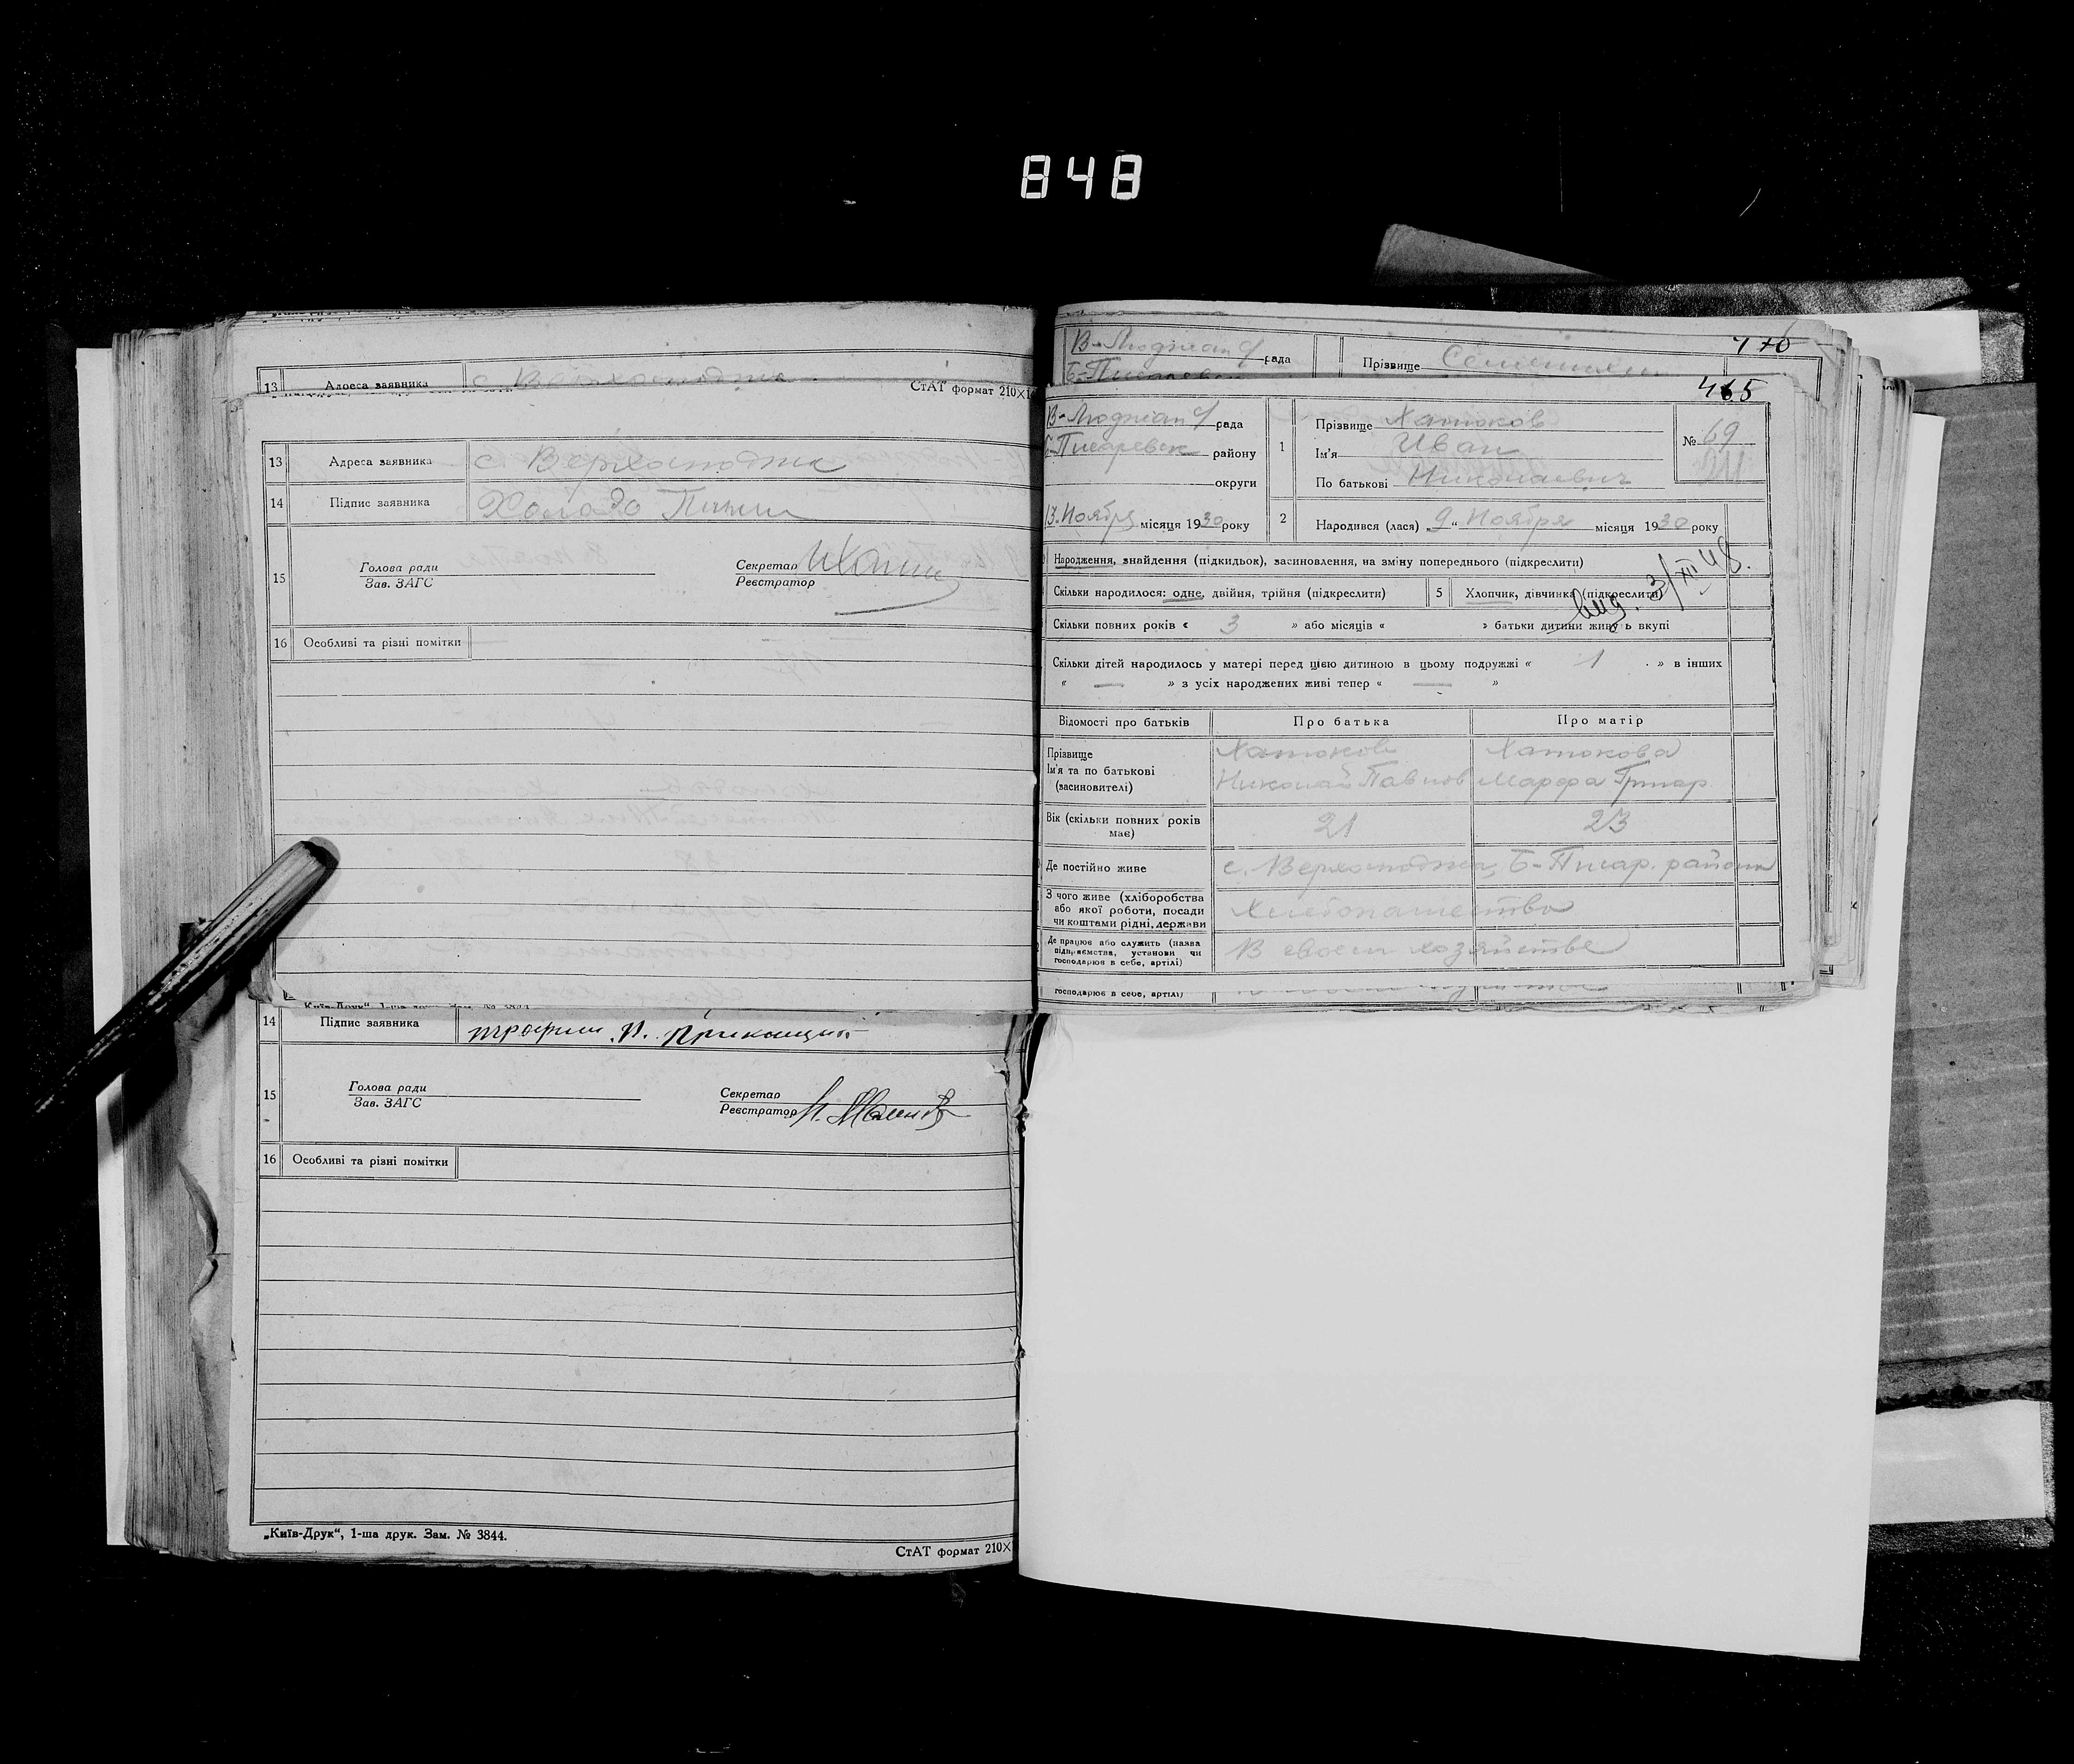 848
13 Адреса заявника с Верхолюджа
СтАТ формат 210×1
13 Адреса заявника с Верхолюджа
14 Підпис заявника
15 Голова ради
Зав. ЗАГС
Секретар
Реєстратор
16 Особливі та різні помітки
14 Підпис заявника
15 Голова ради
Зав. ЗАГС
Секретар
Реєстратор
16 Особливі та різні помітки
„Київ-Друк“, 1-ша друк. Зам. № 3844.
СтАТ формат 210×
рада
Прізвище
465
рада
Б-Писаревск району
округи
13 Ноября місяця 1930 року
1 Прізвище Хатюков
Ім'я Иван
По батькові Николаевич
№ 69
2 Народився (лася) „9“ Ноября місяця 1930 року
Народження, знайдення (підкидьок), засиновлення, на зміну попереднього (підкреслити)
Скільки народилося: одне, двійня, трійня (підкреслити)
5 Хлопчик, дівчинка (підкреслити)
Выд. 3/XII 48.
Скільки повних років « 3 » або місяців « » батьки дитини живуть вкупі
Скільки дітей народилось у матері перед цією дитиною в цьому подружжі « 1 » в інших
« — » з усіх народжених живі тепер « — »
Відомості про батьків
Про батька
Про матір
Прізвище
Ім'я та по батькові
(засиновителі)
Хатюков
Николай Павлов
Хатюкова
Марфа Григор.
Вік (скільки повних років
має)
21
23
Де постійно живе
с. Верхолюджа, Б-Писар. района
З чого живе (хліборобства
або якої роботи, посади
чи коштами рідні, держави
Хлебопашество
Де працює або служить (назва
підприємства, установи чи
господарює в себе, артілі)
В своем хозяйстве
господарює в себе, артілі)